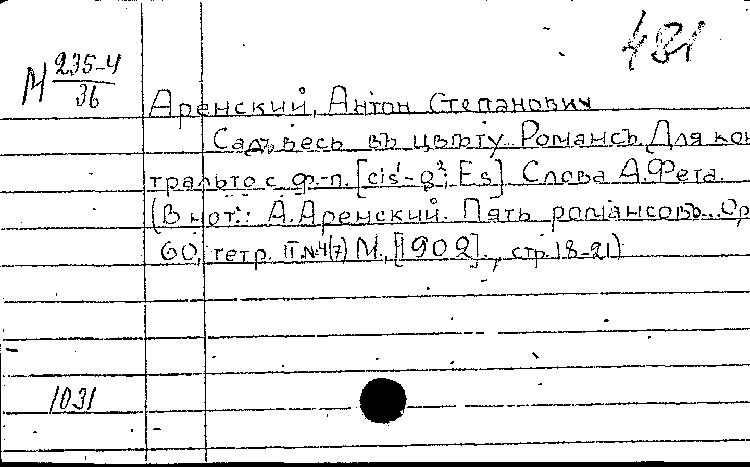 481
М 235-4
36
Аренский, Антон Степанович
Садъ весь въ цвѣту. Романсъ. Для кон
тральто с ф.-п. [cis¹-g²; Es]. Слова А. Фета.
(В нот.: А. Аренский. Пять романсовъ... Ор
60, тетр. II №4(7) М., [1902]., стр. 18-21)
1031